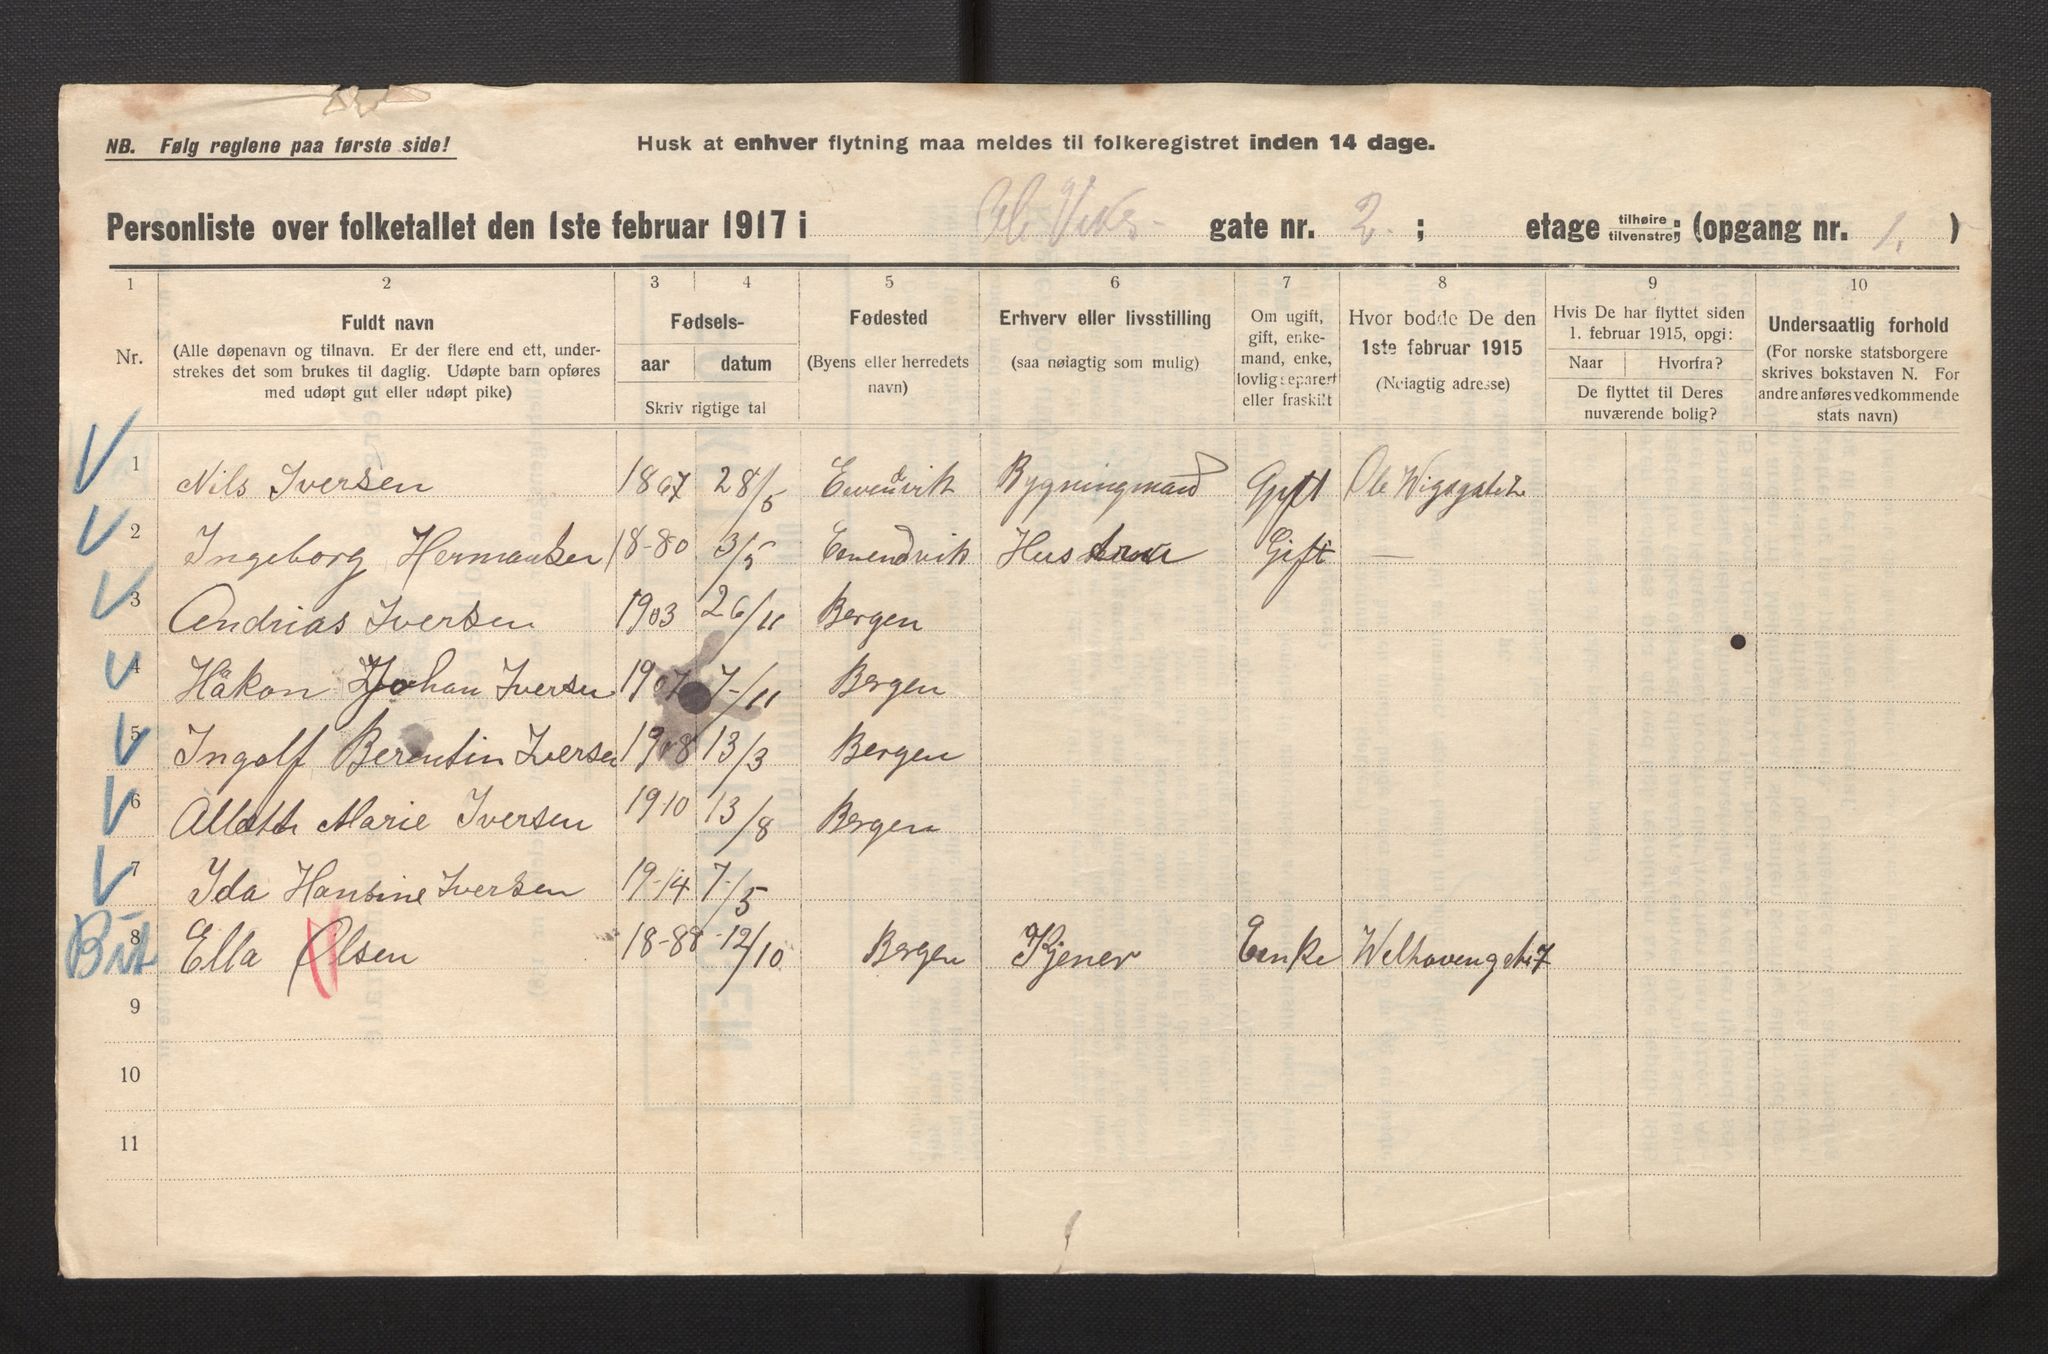 NB. Følg reglene paa første side!
Husk at enhver flytning maa meldes til folkeregistret inden 14 dage.
Personliste over folketallet den 1ste februar 1917 i Ole Viks- gate nr. 2. ; etage tilhøire / tilvenstre; (opgang nr. 1. )
1 2 3 4 5 6 7 8 9 10
Nr.
Fuldt navn
(Alle døpenavn og tilnavn. Er der flere end ett, under-
strekes det som brukes til daglig. Udøpte barn opføres
med udøpt gut eller udøpt pike)
Fødsels-
aar datum
Skriv rigtige tal
Fødested
(Byens eller herredets
navn)
Erhverv eller livsstilling
(saa nøiagtig som mulig)
Om ugift,
gift, enke-
mand, enke,
lovlig separert
eller fraskilt
Hvor bodde De den
1ste februar 1915
(Nøiagtig adresse)
Hvis De har flyttet siden
1. februar 1915, opgi:
Naar Hvorfra?
De flyttet til Deres
nuværende bolig?
Undersaatlig forhold
(For norske statsborgere
skrives bokstaven N. For
andre anføres vedkommende
stats navn)
1 Nils Iversen 1867 28/5 Evendvik Bygningmand Gift Ole Wigsgate 2
2 Ingeborg Hermansen 18-80 3/5 Evendvik Hustru Gift —
3 Andrias Iversen 1903 26/11 Bergen
4 Håkon Johan Iversen 1907 7-/11 Bergen
5 Ingolf Berentin Iversen 1908 13/3 Bergen
6 Allette Marie Iversen 1910 13/8 Bergen
7 Ida Hansine Iversen 19-14 7-/5
8 Ella Olsen 18-88 -12/10 Bergen Kjener Enke
9
10
11